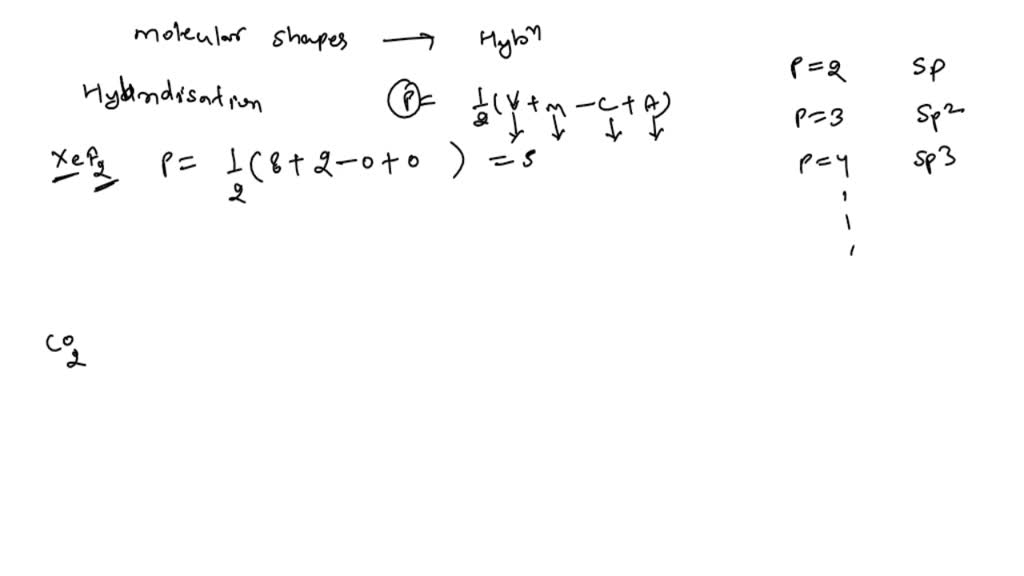 molecular shapes → Hybⁿ
Hybridisation P = 1/2 (V + M - C + A)
XeF₂ P = 1/2 (8 + 2 - 0 + 0) = 5
P=2 sp
P=3 sp²
P=4 sp³
CO₂